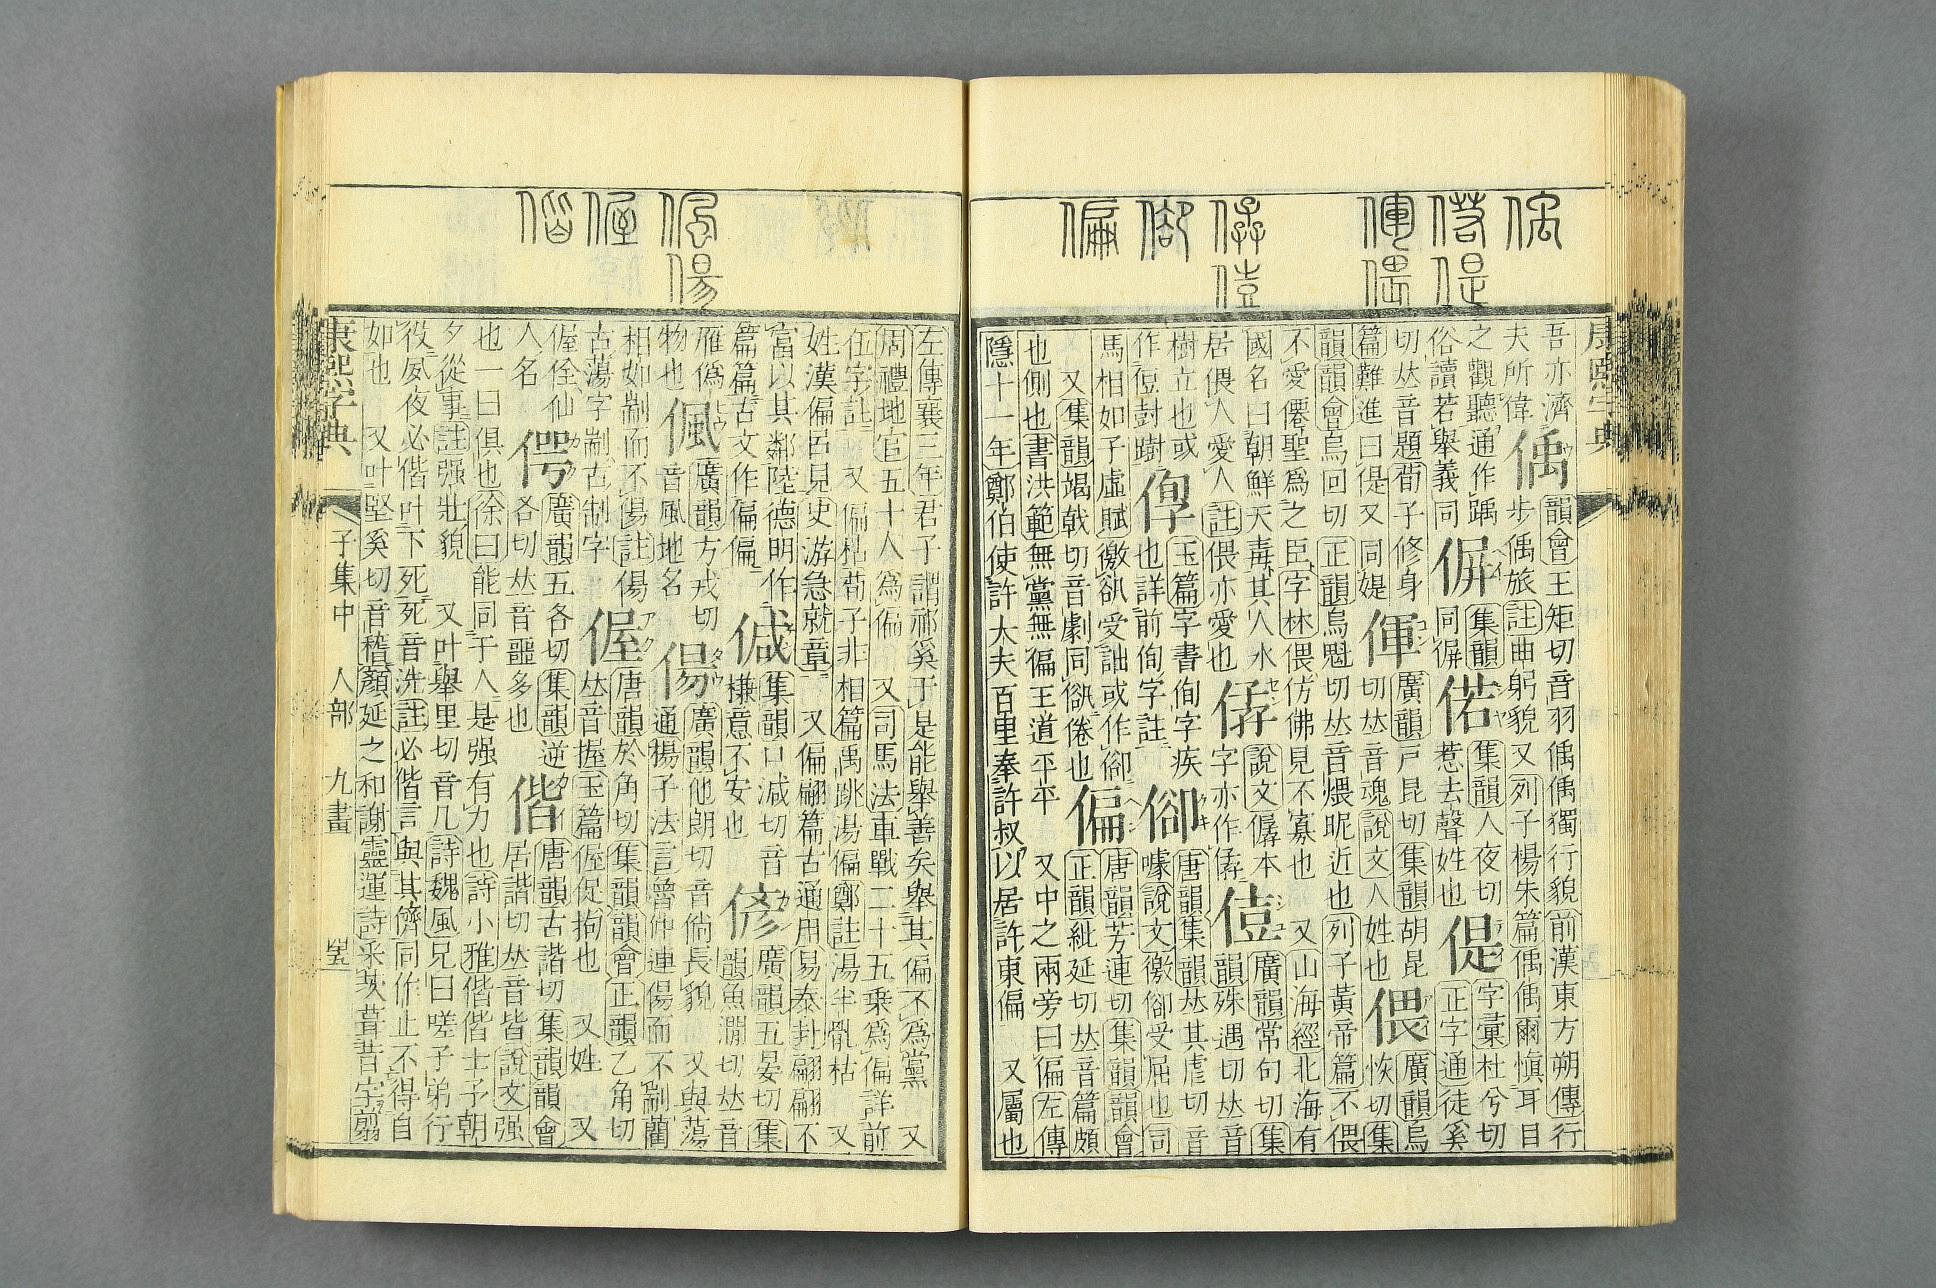 康熙字典
吾亦濟
夫所偉
偊
韻會王矩切音羽偊偊獨行貌前漢東方朔傳行
步偊旅註曲躬貌又列子楊朱篇偊偊爾愼耳目
之觀聽通作踽
俗讀若舉義同
偋
集韻
同僻
偌
集韻人夜切
惹去聲姓也
偍
字彙杜兮切
正字通徒奚
切𠀤音題荀子修身
篇難進曰偍又同媞
㑮
廣韻戸昆切集韻胡昆
切𠀤音魂說文人姓也
偎
廣韻烏
恢切集
韻韻會烏回切正韻烏魁切𠀤音煨昵近也列子黃帝篇不偎
不愛僊聖爲之臣字林偎仿佛見不寡也 又山海經北海有
國名曰朝鮮天毒其人水
居偎人愛人註偎亦愛也
說文僝本
字亦作僝
廣韻常句切集
韻殊遇切𠀤音
樹立也或
作侸尌
玉篇字書侚字疾
也詳前侚字註
唐韻集韻𠀤其虐切音
噱說文徼𠊬受屈也司
馬相如子虛賦徼𠊬受詘或作卻
又集韻竭戟切音劇同𠊬倦也
偏
唐韻芳連切集韻韻會
正韻紕延切𠀤音篇頗
也側也書洪範無黨無偏王道平平 又中之兩旁曰偏左傳
隱十一年鄭伯使許大夫百里奉許叔以居許東偏 又屬也
左傳襄三年君子謂祁奚于是能舉善矣舉其偏不爲黨 又
周禮地官五十人爲偏 又司馬法車戰二十五乗爲偏詳前
伍字註 又偏枯荀子非相篇禹跳湯偏鄭註湯半體枯 又
姓漢偏呂見史游急就章 又偏翩篇古通用易泰封翩翩不
富以其鄰陸德明作
篇篇古文作偏偏
㑘
集韻口減切音
槏意不安也
偐
廣韻五晏切集
韻魚澗切𠀤音
雁僞
物也
偑
廣韻方戎切
音風地名
偒
廣韻他朗切音倘長貌 又與蕩
通揚子法言魯仲連偒而不制藺
相如制而不偒註偒
古蕩字制古制字
偓
唐韻於角切集韻韻會正韻乙角切
𠀤音握玉篇偓促拘也 又姓 又
偓佺仙
人名
偔
廣韻五各切集韻逆
各切𠀤音噩多也
偕
唐韻古諧切集韻韻會
居諧切𠀤音皆說文强
也一曰俱也徐曰能同于人是强有力也詩小雅偕偕士子朝
夕從事註强壯貌 又叶舉里切音几詩魏風兄曰嗟子弟行
役夙夜必偕叶下死死音洗註必偕言與其儕同作止不得自
如也 又叶堅奚切音稽顏延之和謝靈運詩采茨葺昔宇翦
康熙字典 子集中 人部 九畫